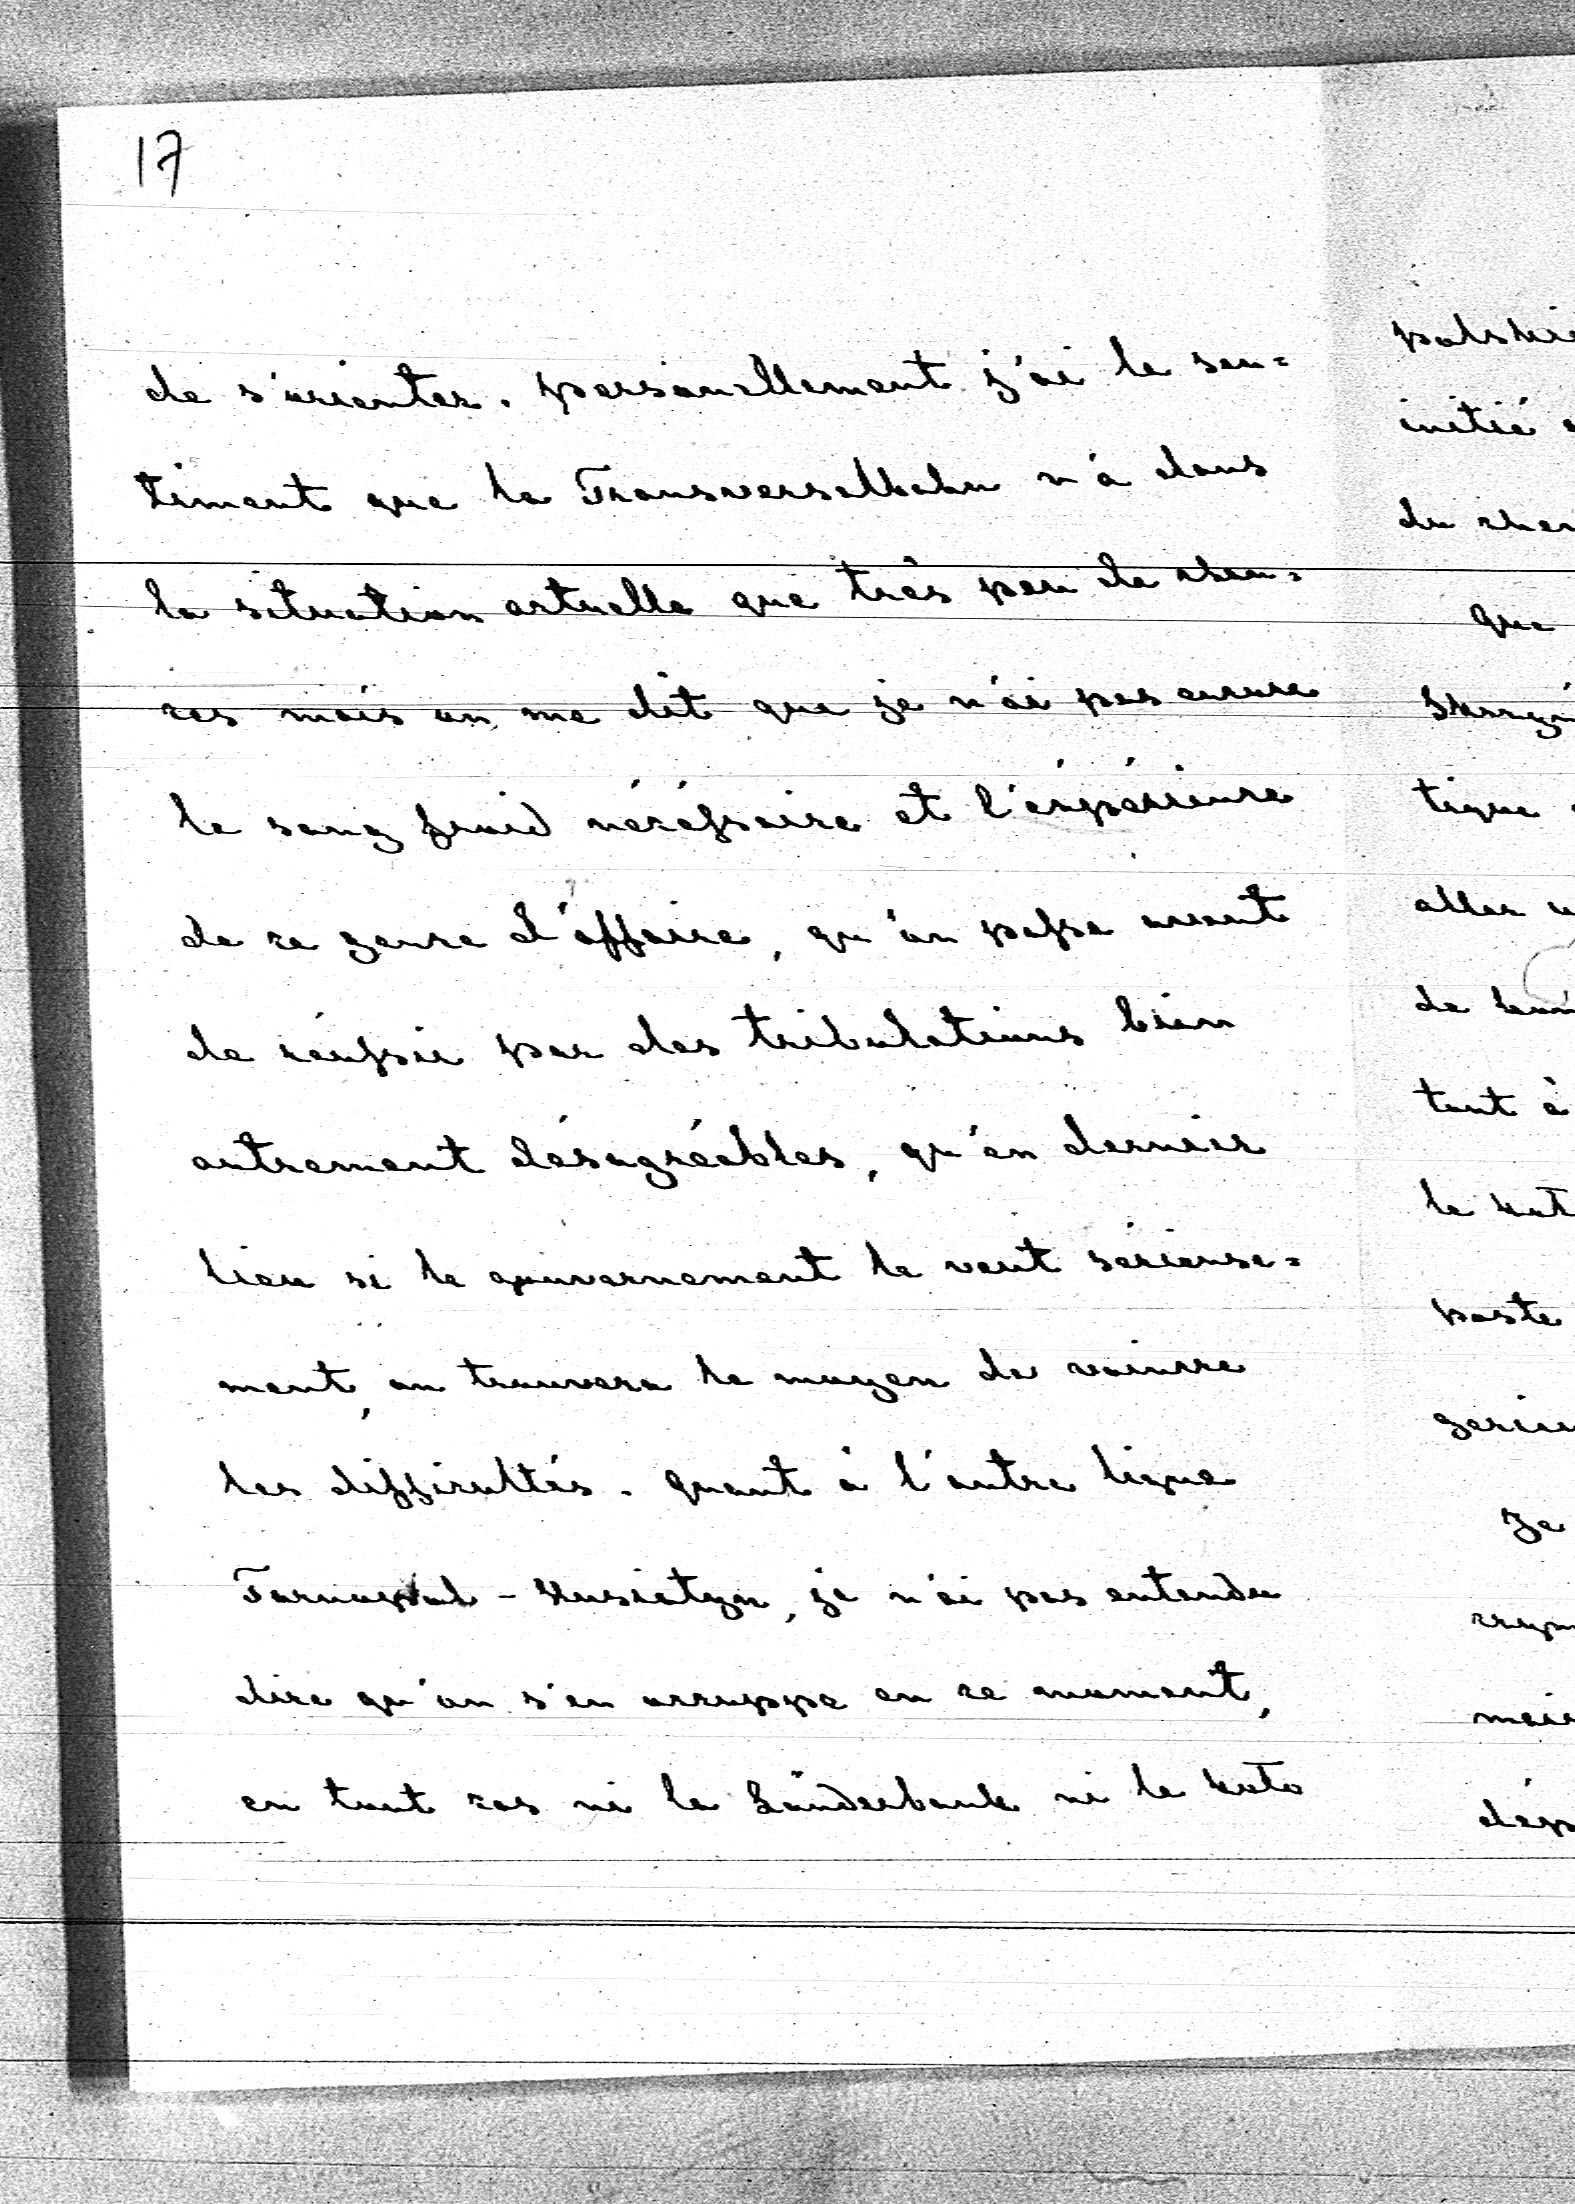 17
de s'orienter. personellement j'ai le sen=
timent que la Transversalbahn n'a dans
la situation actuelle que très peu de chan=
ces mais on me dit que je n'ai pas encore
le sang froid nécéssaire et l'expérience
de ce genre d'affaire, qu'on passe avant
de réussir par des tribulations bien
autrement désagréables, qu'en dernier
lieu si le gouvernement le veut sérieuse=
ment, on trouvera le moyen de vaincre
les difficultés. quant à l'autre ligne
Tarnopol - Husiatyn, je n'ai pas entendu
dire qu'on s'en occuppe en ce moment,
en tout cas ni la Länderbank ni le Koło
initié
que
tique
aller
tout à
poste
je